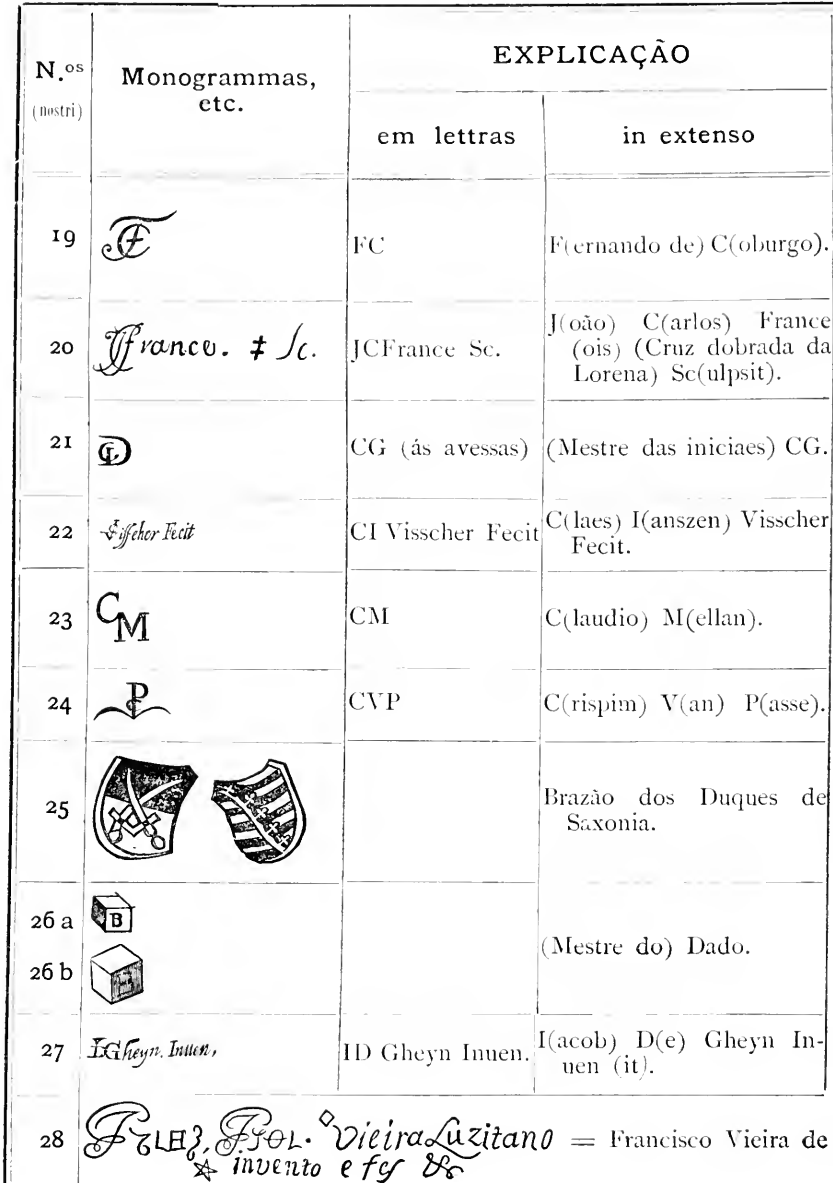 N.os
(nostri)
Monogrammas,
etc.
EXPLICAÇÃO
em lettras
in extenso
19
FC
F(ernando de) C(oburgo).
20
JFrance. ‡ Sc.
JCFrance Sc.
J(oão) C(arlos) France
(ois) (Cruz dobrada da
Lorena) Sc(ulpsit).
21
CG (ás avessas)
(Mestre das iniciaes) CG.
22
Visscher Fecit
CI Visscher Fecit
C(laes) I(anszen) Visscher
Fecit.
23
CM
CM
C(laudio) M(ellan).
24
CVP
C(rispim) V(an) P(asse).
25
Brazão dos Duques de
Saxonia.
26 a
B
(Mestre do) Dado.
26 b
27
Gheyn. Inuen,
ID Gheyn Inuen.
I(acob) D(e) Gheyn In-
uen (it).
28
Vieira Luzitano = Francisco Vieira de
invento e